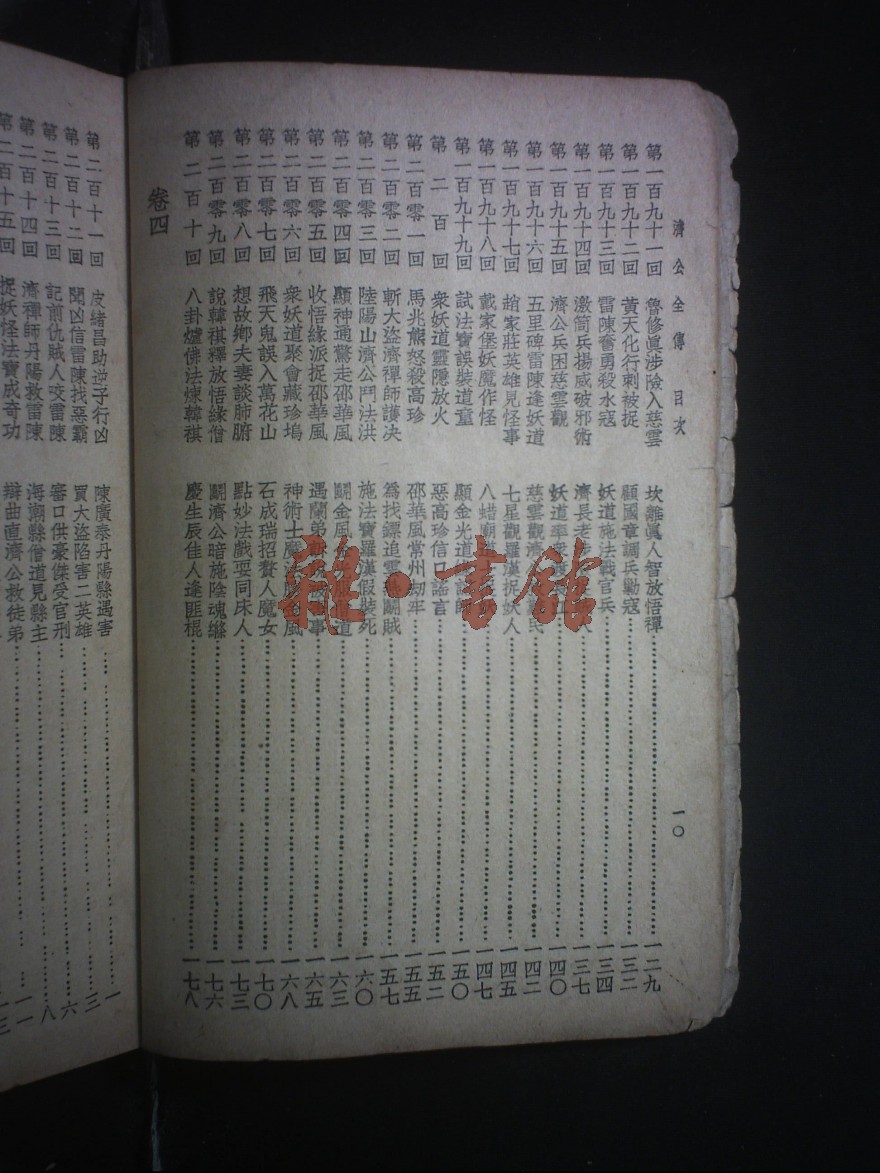 濟公全傳 目次
一〇
第一百九十一回 魯修眞涉險入慈雲 坎離眞人智放悟禪 一二九
第一百九十二回 黃天化行刺被捉 顧國章調兵勦寇 一三二
第一百九十三回 雷陳奮勇殺水寇 妖道施法戰官兵 一三四
第一百九十四回 激筒兵揚威破邪術 濟長老 人 一三七
第一百九十五回 濟公兵困慈雲觀 妖道率衆 一四〇
第一百九十六回 五里碑雷陳逢妖道 慈雲觀濟 民 一四二
第一百九十七回 趙家莊英雄見怪事 七星觀羅漢捉妖人 一四五
第一百九十八回 戴家堡妖魔作怪 八蜡廟 一四七
第一百九十九回 試法寶誤裝道童 顯金光道 師 一五〇
第二百回 衆妖道靈隱放火 惡高珍信口謠言 一五二
第二百零一回 馬兆熊怒殺高珍 邵華風常州劫牢 一五五
第二百零二回 斬大盜濟禪師護决 爲找鏢追雲燕鬭賊 一五七
第二百零三回 陸陽山濟公鬥法洪 施法寶羅漢假裝死 一六〇
第二百零四回 顯神通驚走邵華風 鬭金風金 道 一六三
第二百零五回 收悟緣派捉邵華風 遇蘭弟 事 一六五
第二百零六回 衆妖道聚會藏珍塢 神術士魔法勝金風 一六八
第二百零七回 飛天鬼誤入萬花山 石成瑞招贅入魔女 一七〇
第二百零八回 想故鄉夫妻談肺腑 點妙法戲耍同床人 一七三
第二百零九回 說韓祺釋放悟緣僧 鬭濟公暗施陰魂縧 一七六
第二百十回 八卦爐佛法煉韓祺 慶生辰佳人逢匪棍 一七八
卷四
第二百十一回 皮緒昌助逆子行凶 陳廣泰丹陽縣遇害 一
第二百十二回 聞凶信雷陳找惡霸 買大盜陷害二英雄 三
第二百十三回 記前仇賊人交雷陳 審口供豪傑受官刑 六
第二百十四回 濟禪師丹陽救雷陳 海潮縣僧道見縣主 八
第二百十五回 捉妖怪法寶成奇功 辯曲直濟公救徒弟 一一
雜·書館